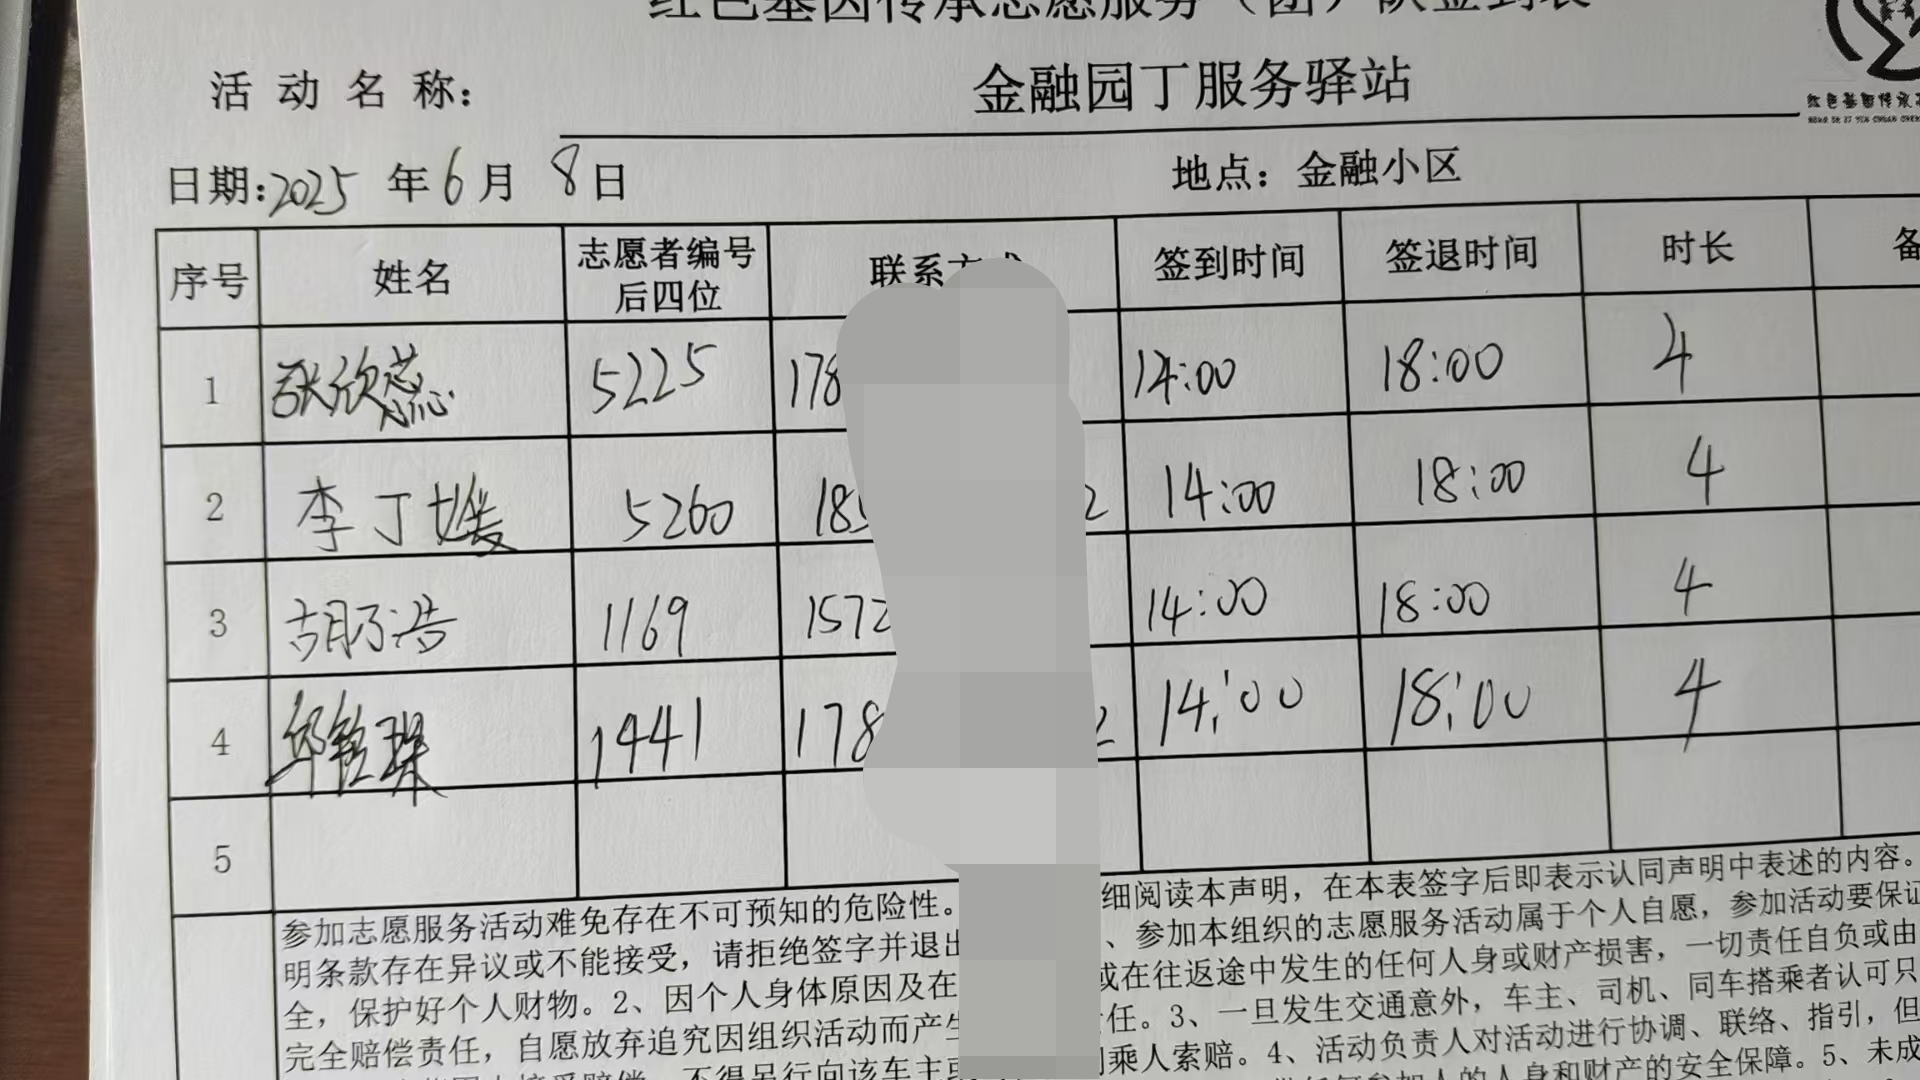 红色基因传承志愿服务（团）队签到表
活动名称：
金融园丁服务驿站
日期:2025年6月8日
地点：金融小区
序号 姓名 志愿者编号后四位 联系方式 签到时间 签退时间 时长 备
1 张欣蕊 5225 178 14:00 18:00 4
2 李丁媛 5260 185 2 14:00 18:00 4
3 胡子浩 1169 1572 14:00 18:00 4
4 邱 琛 1441 178 2 14:00 18:00 4
5
参加志愿服务活动难免存在不可预知的危险性。 细阅读本声明，在本表签字后即表示认同声明中表述的内容。
明条款存在异议或不能接受，请拒绝签字并退出 、参加本组织的志愿服务活动属于个人自愿，参加活动要保证
全，保护好个人财物。2、因个人身体原因及在 或在往返途中发生的任何人身或财产损害，一切责任自负或由
完全赔偿责任，自愿放弃追究因组织活动而产生 责任。3、一旦发生交通意外，车主、司机、同车搭乘者认可只
不得另行向该车主或 同乘人索赔。4、活动负责人对活动进行协调、联络、指引，但
任何参加人的人身和财产的安全保障。5、未成